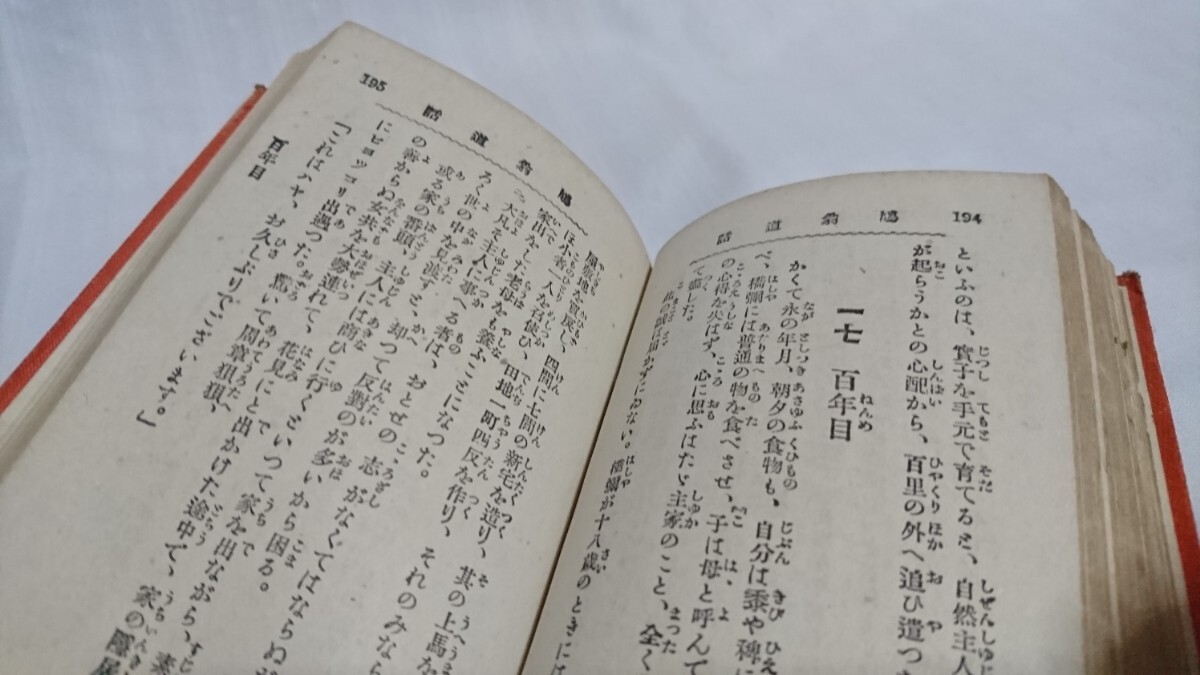 194
鳩翁道話
といふのは、實子を手元で育てると、自然主人
が起らうかとの心配から、百里の外へ追ひ遣つた
一七 百年目
かくて永の年月、朝夕の食物も、自分は黍や稗に
べ、橋彌には普通の物を食べさせ、子は母と呼んで
の心得を失はず、心に思ふはたゞ主家のこと、全く
橋彌が十八歳のときには
195
鳩翁道話
屋敷地を買戻し、四間に七間の新宅を造り、其の上馬を
は小者一人を召使ひ、田地一町四反を作り、それのみなら
家出をした老母をも養ふことになつた。
大凡そ主人に事へる者は、おとせのこゝろざしがなくてはならぬが
ろく世の中を見渡すと、却つて反對のが多いからこまる。
或る家の番頭、主人には商ひに行くといつて家を出ながら、すじ
の新からぬ女共を大勢連れて、花見にとで出かけた途中で、家の隱居
にヒョッコリ出遇つた。驚いて周章狼狽、
「これはハヤ、お久しぶりでございます。」
百年目